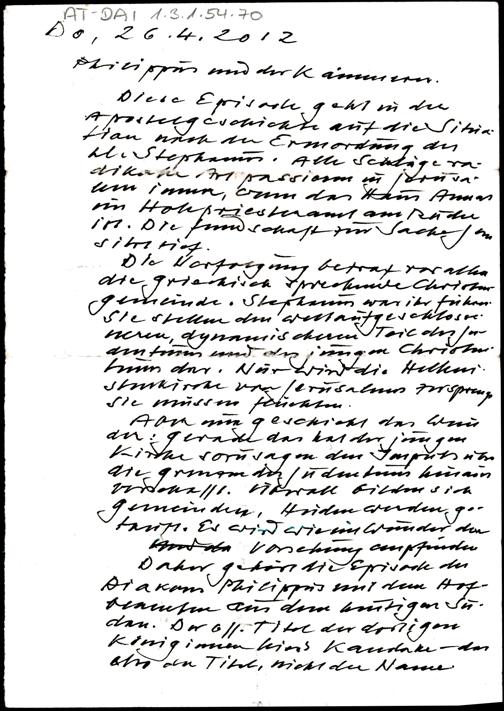 AT-DAI 1.3.1.54.70
Do, 26.4.2012
Philippus und der Kämmerer.
Diese Episode geht in die
Apostelgeschichte auf die Situa-
tion nach der Ermordung des
hl. Stephanus. Alle Schläge ra-
dikale passieren in Jerusa-
lem immer, wenn das Haus Annas
im Hohepriesteramt am Ruder
ist. Die Feindschaft zur Sache Jesu
sitzt tief.
Die Verfolgung betraf vor allem
die griechisch sprechende Christen
gemeinde. Stephanus war ihr Führer
Sie stellen den weltaufgeschlosse-
neren, dynamischeren Teil des Ju-
dentums und des jungen Christen-
tums dar. Nur wird die Helleni-
stenkirche von Jerusalem zersprengt
Sie müssen flüchten.
Aber nun geschieht das Wun
der: gerade das hat der jungen
Kirche sozusagen den Impuls über
die Grenzen des Judentums hinaus
verschafft. Überall bilden sich
Gemeinden, Heiden werden ge-
tauft. Es wird wie ein Wunder der
Vorsehung empfunden
Daher gehört die Episode des
Diakons Philippus mit dem Hof-
beamten aus dem heutigen Su-
dan. Der off. Titel der dortigen
Königinnen hiess Kandake – das
also der Titel, nicht der Name